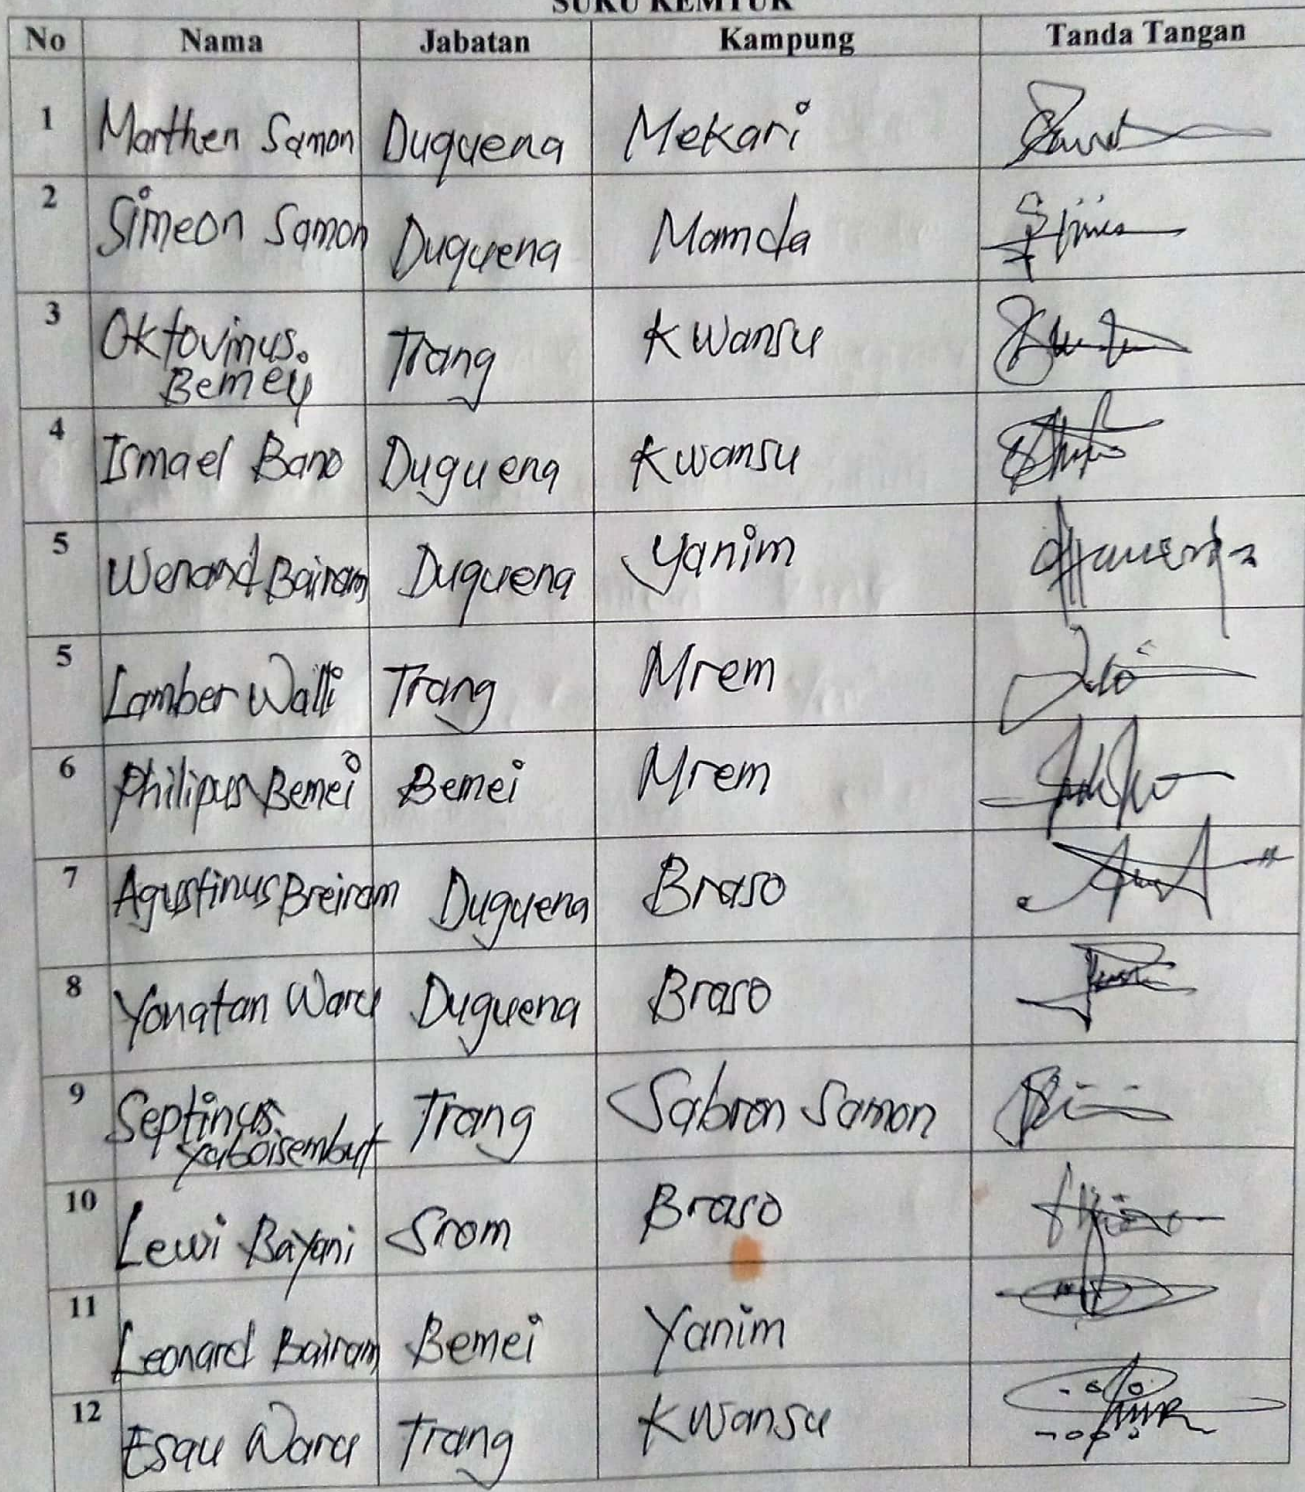 SUKU KEMTUK
No Nama Jabatan Kampung Tanda Tangan
1 Marthen Samon Duguena Mekari
2 Simeon Samon Duguena Mamda
3 Oktovinus. Bemey Trang Kwansu
4 Ismael Bano Duguena Kwansu
5 Wenand Bairam Duguena Yanim
5 Lamber Walli Trang Mrem
6 Philipus Bemei Bemei Mrem
7 Agustinus Breiram Duguena Braso
8 Yonatan Waru Duguena Braso
9 Septinus Yaboisembut Trang Sabron Samon
10 Lewi Bayani Srom Braso
11 Leonard Bairam Bemei Yanim
12 Esau Waru Trang Kwansu